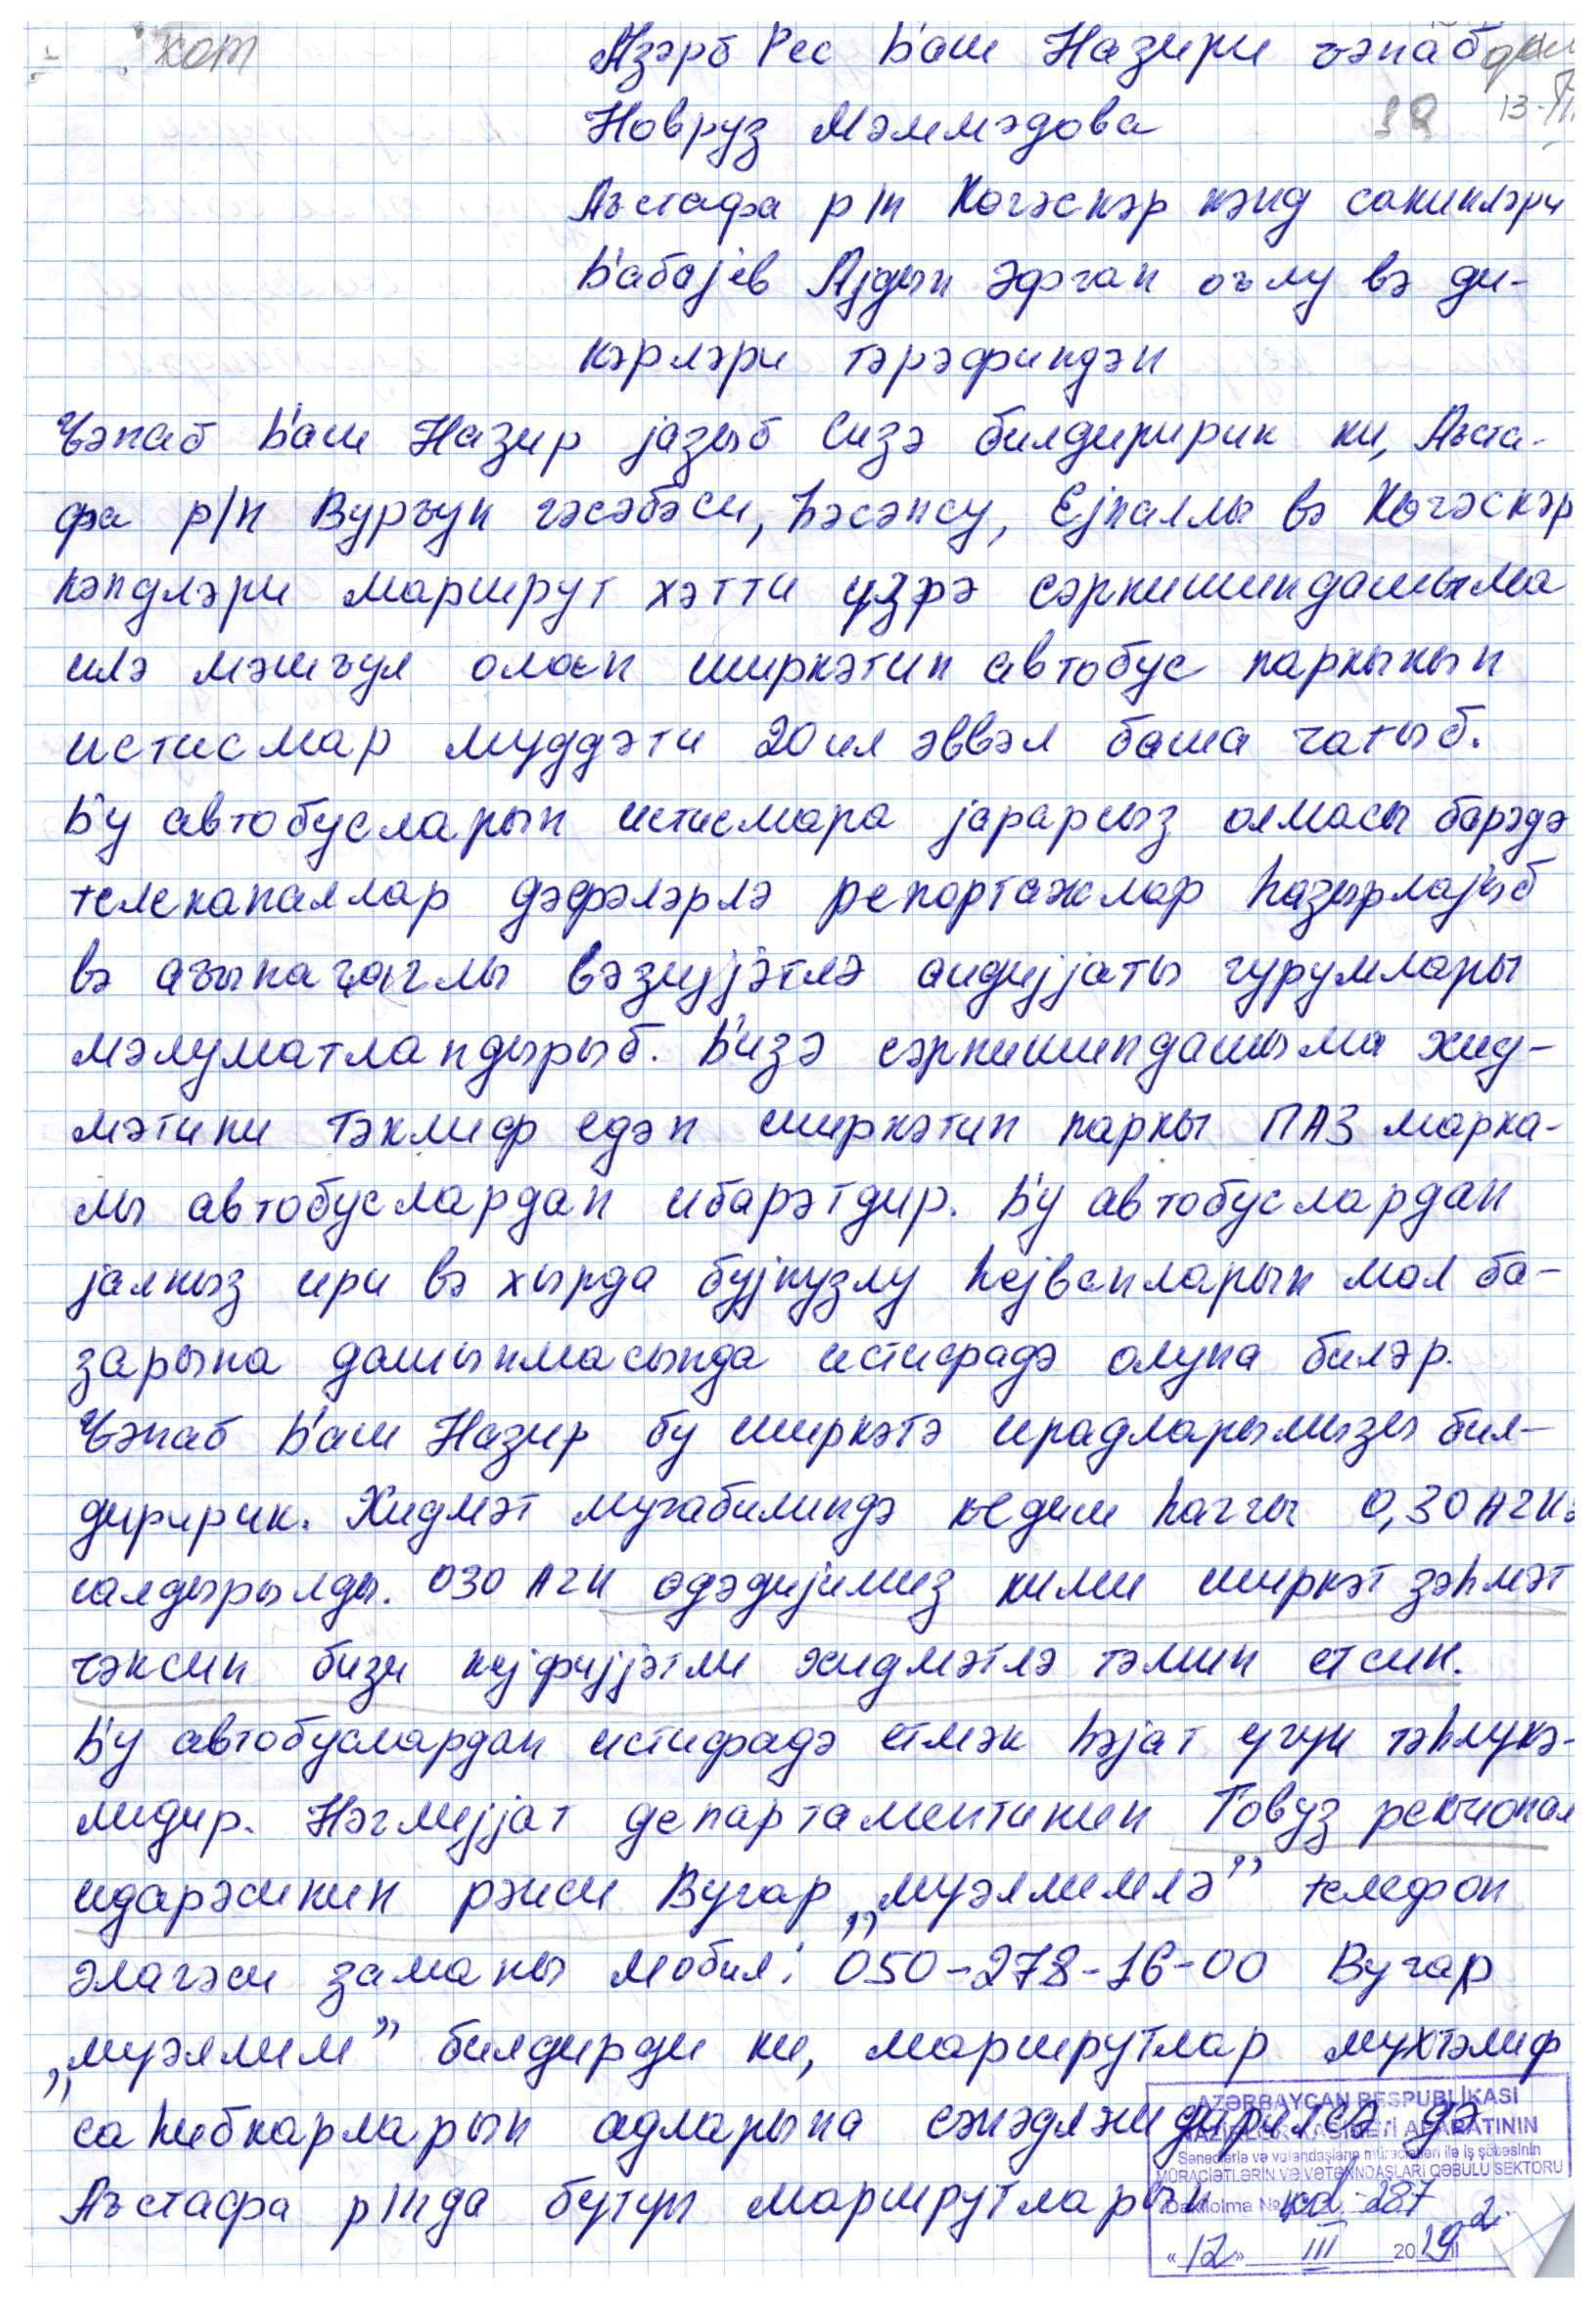 кот
Азәрб Рес Баш Назири ҹәнаб
Новруз Мәммәдова
38 13-III
Аъстафа р/н Көчәскәр кәнд сакинләри
Бабајев Ајдын Әфган оълу вә ди-
кәрләри тәрәфиндән
Ҹәнаб Баш Назир јазыб Сизә билдиририк ки, Аъста-
фа р/н Вуръун гәсәбәси, Һәсәнсу, Ејналлы вә Көчәскәр
кәндләри маршрут хәтти үзрә сәрнишиндашыма
илә мәшъул олан ширкәтин автобус паркынын
истисмар муддәти 20 ил әввәл баша чатыб.
Бу автобусларын истисмара јарарсыз олмасы барәдә
телеканаллар дәфәләрлә репортажлар һазырлајыб
вә аъынаҹаглы вәзијјәтлә аидијјаты гурумлары
мәлуматландырыб. Бизә сәрнишиндашыма хид-
мәтини тәклиф едән ширкәтин паркы ПАЗ марка-
лы автобуслардан ибарәтдир. Бу автобуслардан
јалныз ири вә хырда бујнузлу һејванларын мал ба-
зарына дашынмасында истифадә олуна биләр.
Ҹәнаб Баш Назир бу ширкәтә ирадларымызы бил-
диририк. Хидмәт мугабилиндә кедиш һаггы 0,30 АZN ә
галдырылды. 030 АZN өдәдијимиз кими ширкәт зәһмәт
чәксин бизи кејфијјәтли хидмәтлә тәмин етсин.
Бу автобуслардан истифадә етмәк һәјат үчүн тәһлукә-
лидир. Нәглијјат департаментинин Товуз рекионал
идарәсинин рәиси Вугар „муәллимлә” телефон
әлагәси заманы мобил: 050-278-16-00 Вугар
„муәллим” билдирди ки, маршрутлар мухтәлиф
саһибкарларын адларына сәнәдләндирилсә дә
Аъстафа р/нда бүтүн маршрутларын
AZƏRBAYCAN RESPUBLİKASI
NAZİRLƏR KABİNETİ APARATININ
Sənədlərlə və vətəndaşların müraciətləri ilə iş şöbəsinin
MÜRACİƏTLƏRİN VƏ VƏTƏNDAŞLARI QƏBULU SEKTORU
Daxilolma № -287 2
«12» III 2019 il